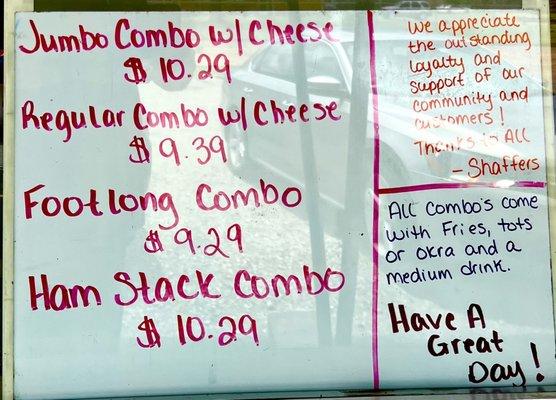 Jumbo Combo w/ Cheese
$ 10.29
Regular Combo w/ Cheese
$ 9.39
Footlong Combo
$ 9.29
Ham Stack Combo
$ 10.29
We appreciate
the outstanding
loyalty and
support of our
community and
customers!
Thanks to All
- Shaffers
All Combo's come
with Fries, tots
or okra and a
medium drink.
Have A
Great
Day!